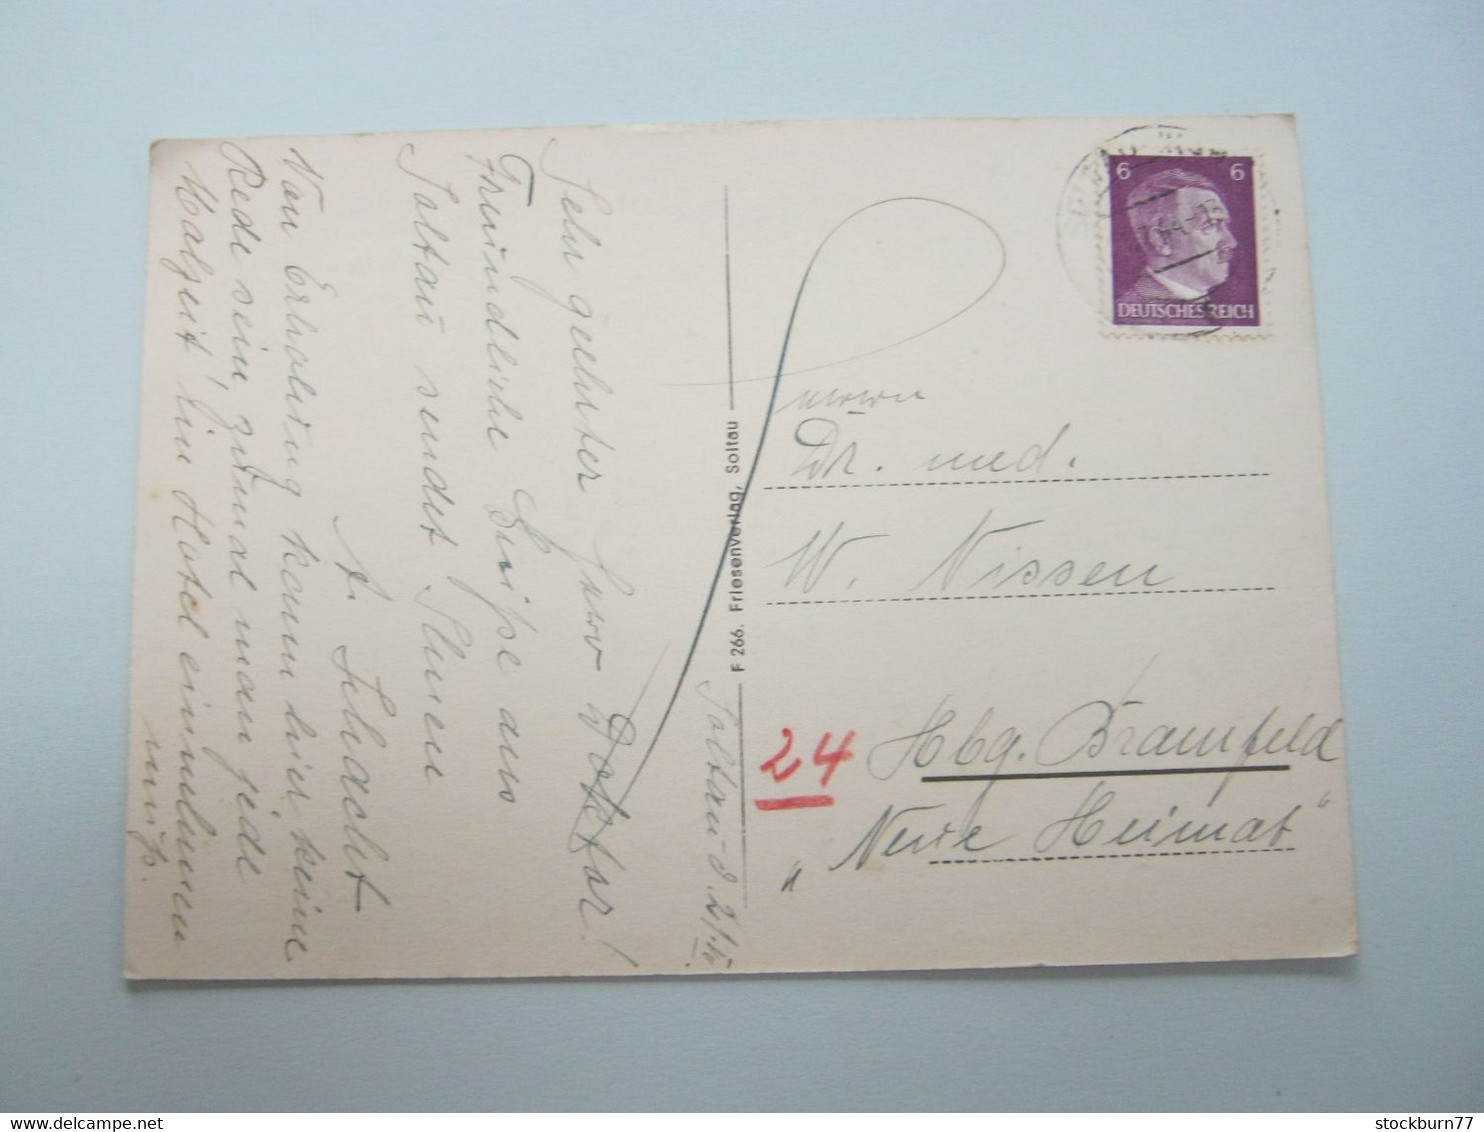 Soltau d. 2/
Sehr geehrter Herr Doktor!
Freundliche Grüße aus
Soltau sendet Ihnen
A. Schacht
Von Erholung kann hier keine
Rede sein, zumal man jede
Malzeit im Hotel einnehmen
muß.
F 266. Friesenverlag, Soltau
6 6
DEUTSCHES REICH
Herrn
Dr. med.
W. Nissen
24
Hbg. Bramfeld
„Neue Heimat"
www.delcampe.net
stockburn77